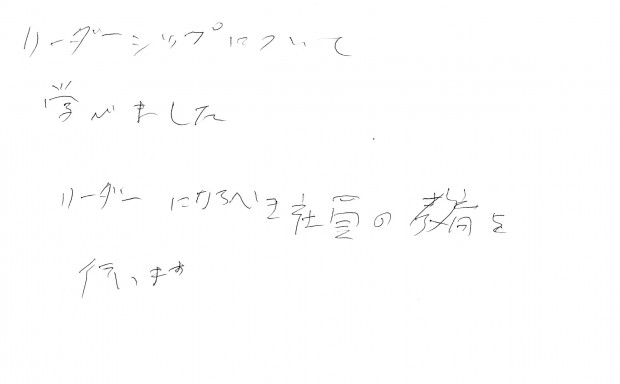 リーダーシップについて
学びました
リーダーになるべき社員の教育を
行います